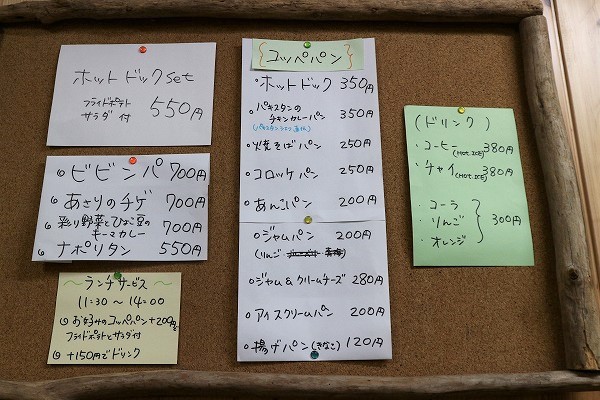 ホットドックset
フライドポテト
サラダ付 550円
ビビンパ 700円
あさりのチゲ 700円
彩り野菜とひよこ豆の
キーマカレー 700円
ナポリタン 550円
〜ランチサービス〜
11:30〜14:00
お好みのコッペパン+200円で
フライドポテトとサラダ付
+150円でドリンク
{コッペパン}
ホットドック 350円
パキスタンの
チキンカレーパン 350円
焼そばパン 250円
コロッケパン 250円
あんこパン 200円
ジャムパン 200円
(りんご
ジャム&クリームチーズ 280円
アイスクリームパン 200円
揚げパン(きなこ) 120円
(ドリンク)
コーヒー(HOT.ICE) 380円
チャイ(HOT.ICE) 380円
・コーラ
・りんご 300円
・オレンジ